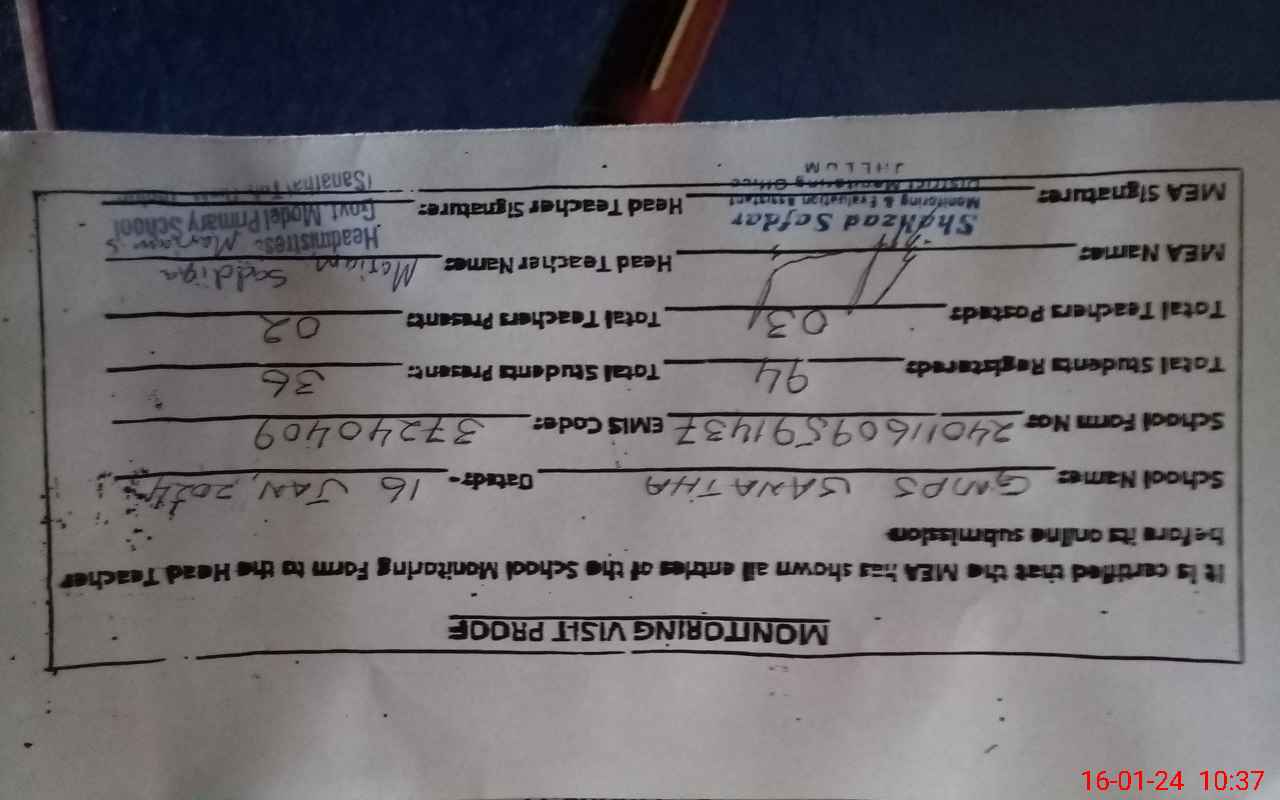 MONITORING VISIT PROOF
It is certified that the MEA has shown all entries of the School Monitoring Form to the Head Teacher
before its online submission.
School Name: GMPS SANATHA Dated:- 16 JAN, 2024
School Form No: 24011609591437 EMIS Code: 37240409
Total Students Registered: 94 Total Students Present: 36
Total Teachers Posted: 03 Total Teachers Present: 02
MEA Name: Head Teacher Name: Mariam Saddiqa
Shahzad Safdar
Monitoring & Evaluation Assistant
District Monitoring Office
JHELUM
MEA Signature: Head Teacher Signature: Mariam.S
Headmistress
Govt. Model Primary School
Sanatha
16-01-24 10:37